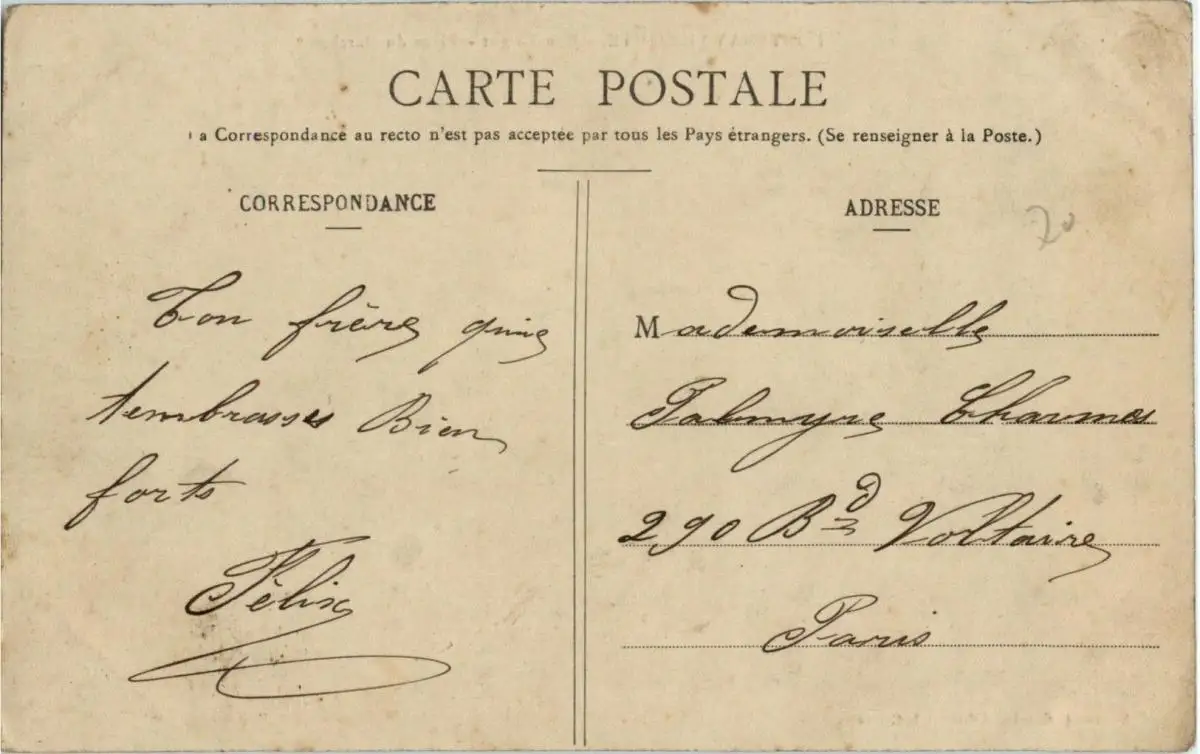 CARTE POSTALE
a Correspondance au recto n'est pas acceptée par tous les Pays étrangers. (Se renseigner à la Poste.)
CORRESPONDANCE
ADRESSE
20
Ton frère qui
tembrasse Bien
forts
Félix
Mademoiselle
Palmyre Charmes
290 Bd Voltaire
Paris